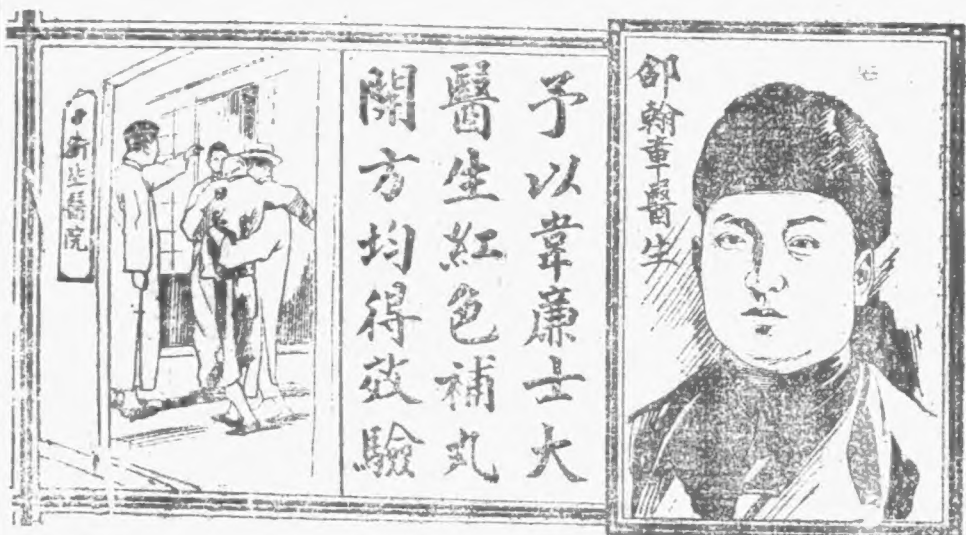 郤翰章醫生
予以韋廉士大
醫生紅色補丸
開方均得效驗
醫院